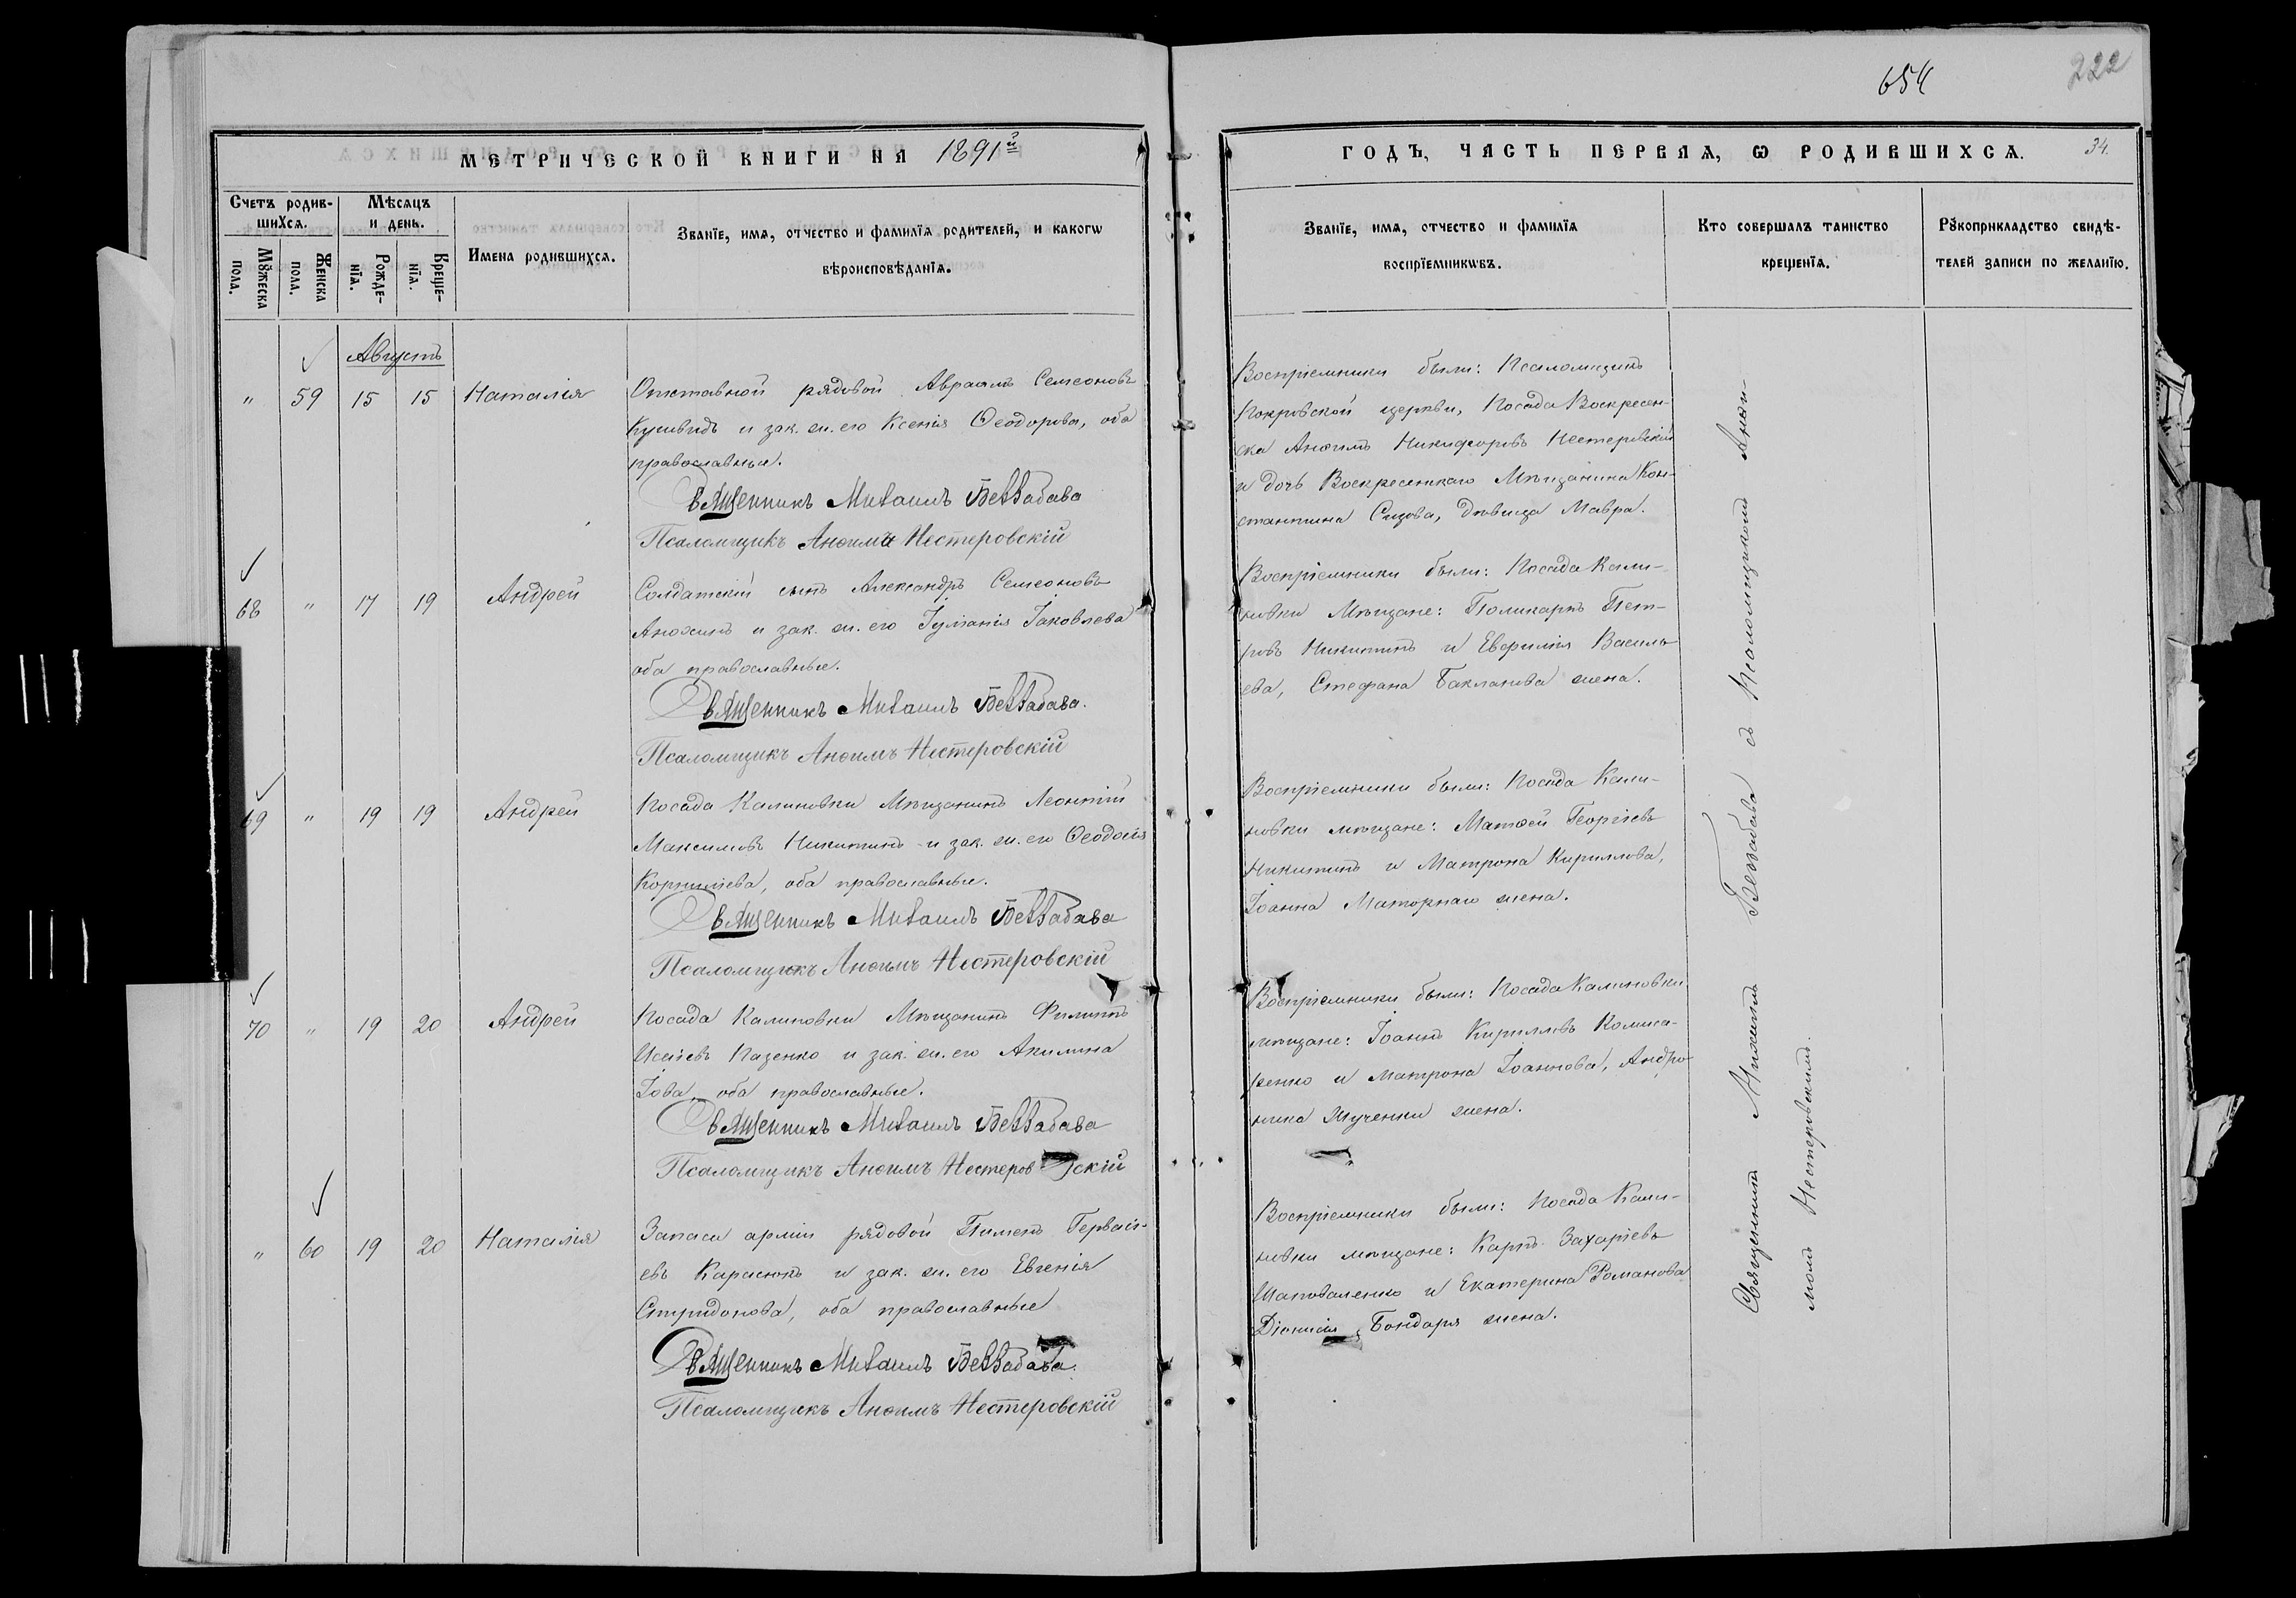 654
222
МЕТРИЧЕСКОЙ КНИГИ НА 1891й
ГОДЪ, ЧАСТЬ ПЕРВАЯ, Ѡ РОДИВШИХСѦ. 34.
Счетъ родив-
шихсѧ.
Мѣсѧцъ
и день.
Мꙋжеска
пола.
Женска
пола.
Рожде-
нїѧ.
Креще-
нїѧ.
Имена родившихсѧ.
Званїе, имѧ, отчество и фамилїѧ родителей, и какогѡ
вѣроисповѣданїѧ.
Званїе, имѧ, отчество и фамилїѧ
воспрїемникѡвъ.
Кто совершалъ таинство
крещенїѧ.
Рꙋкоприкладство свидѣ-
телей записи по желанїю.
Августъ
" 59 15 15 Наталія
Отставной рядовой Авраамъ Семеоновъ
и зак. ж. его Ксенія Ѳеодорова, оба
православные.
Священникъ Михаилъ Беззабава
Псаломщикъ Анѳимъ Нестеровскій
Воспріемники были: Псаломщикъ
Покровской церкви, Посада Воскресен-
ска Анѳимъ Никифоровъ Нестеровскій
и дочь Воскресенскаго Мѣщанина Кон-
стантина Сизова, дѣвица Мавра.
68 " 17 19 Андрей
Солдатскій сынъ Александръ Семеоновъ
Анохинъ и зак. ж. его Іуліанія Іаковлева
оба православные.
Священникъ Михаилъ Беззабава.
Псаломщикъ Анѳимъ Нестеровскій
Воспріемники были: Посада Кали-
новки Мѣщане: Поликарпъ Пет-
ровъ Никитинъ и Евфимія Василь-
ева, Стефана Бакланова жена.
69 " 19 19 Андрей
Посада Калиновки Мѣщанинъ Леонтій
Максимовъ Никитинъ и зак. ж. его Ѳеодосія
Корниліева, оба православные.
Священникъ Михаилъ Беззабава
Псаломщикъ Анѳимъ Нестеровскій
Воспріемники были: Посада Кали-
новки мѣщане: Матѳей Георгіевъ
Никитинъ и Матрона Кириллова,
Іоанна Маторнаго жена.
70 " 19 20 Андрей
Посада Калиновки Мѣщанинъ Филиппъ
Исаіевъ Пазенко и зак. ж. его Акилина
Іова, оба православные.
Священникъ Михаилъ Беззабава
Псаломщикъ Анѳимъ Нестеровскій
Воспріемники были: Посада Калиновки
мѣщане: Іоаннъ Кирилловъ Комиса-
ренко и Матрона Іоаннова, Андро-
ника жена.
" 60 19 20 Наталія
Запаса арміи рядовой Пименъ Гервасі-
евъ Карасюкъ и зак. ж. его Евгенія
Спиридонова, оба православные
Священникъ Михаилъ Беззабава.
Псаломщикъ Анѳимъ Нестеровскій
Воспріемники были: Посада Кали-
новки мѣщане: Карпъ Захаріевъ
Шаповаленко и Екатерина Романова
Діонисія Бондаря жена.
Священникъ Михаилъ Беззабава съ Псаломщикомъ Анѳи-
момъ Нестеровскимъ.